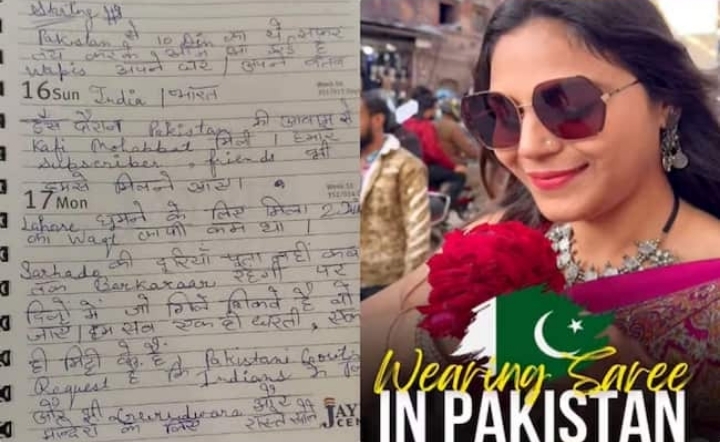 Pakistan से 10 Din का ये सफर
तय करके आज आ गई है
Wapis अपने घर / अपने वतन
16 Sun India / भारत
इस दौरान Pakistan की आवाम से
Kafi Mohabbat मिली / हमारे
subscriber, friends भी
हमसे मिलने आए।
17 Mon
Lahore घूमने के लिए मिला 2 दिन
का Waqt काफी कम था।
Sarhado की दूरियाँ पता नहीं कब
तक Barkaraar रहेगी पर
दिलों में जो गिले शिकवे है वो
जाए। हम सब एक ही धरती, एक
ही मिट्टी के है।
Pakistani
Request है कि Indians के
और भी Gurudwara और
मन्दिरों के लिए रास्ते खोले
JAY
CE
Wearing Saree
IN PAKISTAN